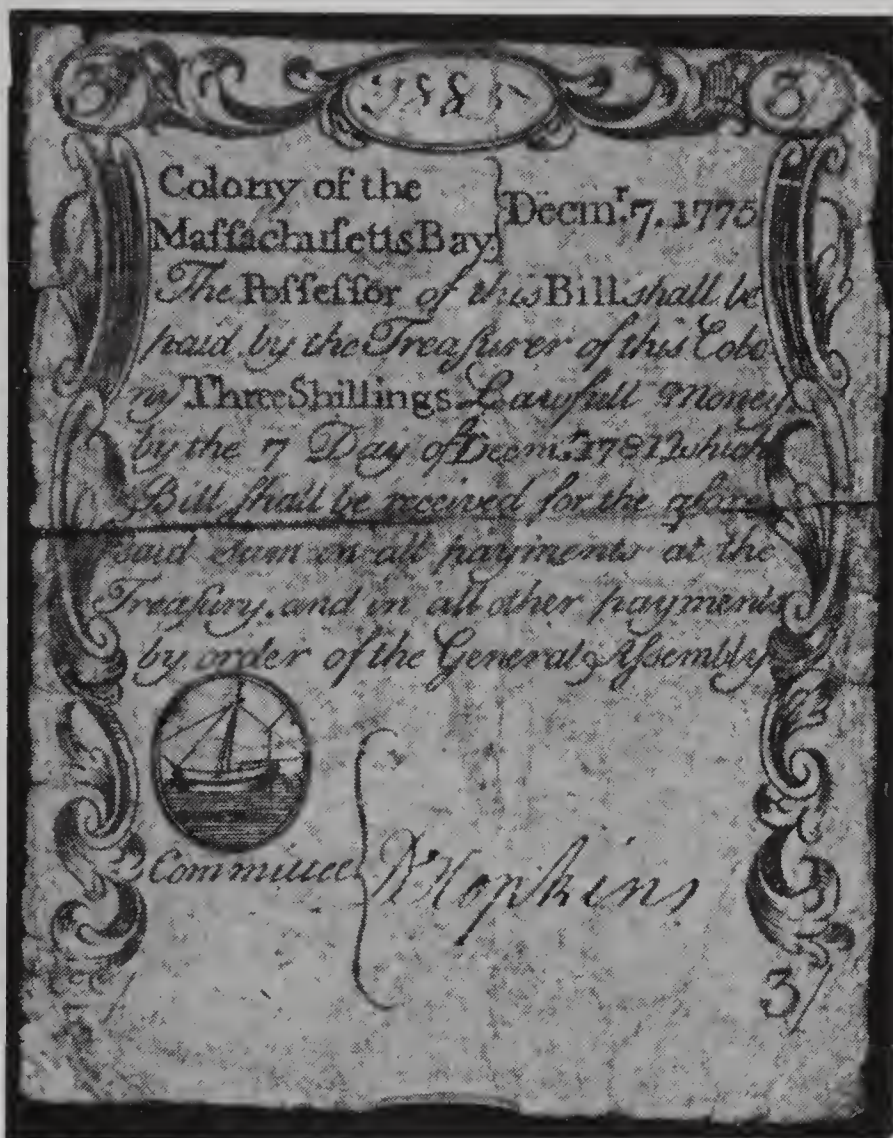 3 3
Colony of the
Maſſachuſetts Bay } Decmʳ. 7. 1775
The Poſſeſſor of this Bill shall be
paid by the Treaſurer of this Colo
ny Three Shillings Lawfull Money
by the 7 Day of Decmʳ. 1781 which
Bill ſhall be received for the afore
said Sum in all payments at the
Treaſury, and in all other payments
by order of the General Aſsembly
Committee { Hopkins
3/